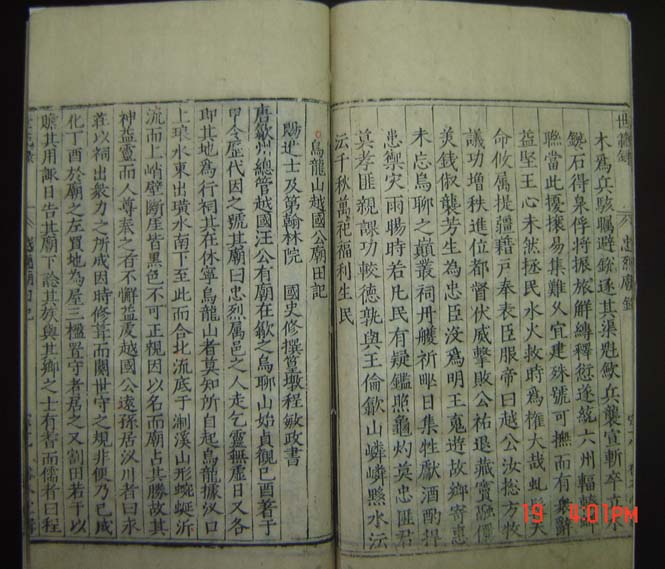 木爲兵駭矚避銳逐其渠魁歙兵襲宣斬卒
鐵石得臬俘捋振旅解縛釋愆遂統六州輻轉
聯當此擾攘易集難乂宜建殊號可撫而有衆辭
益堅王心未然拯民水火救時爲權大哉
命攸屬提疆籍戶奉表臣服帝曰越公汝揔方牧
議功增秩進位都督伏威擊敗公祏退藏
美錢俶襲芳生爲忠臣没爲明王䰟遊故鄉寄惠
未忘烏聊之巔叢祠丹雘祈
日集牲獻酒酌捍
患禦灾雨暘時若凡民有疑鑑照龜灼英忠匪君
眞孝匪親課功較德孰與王倫歙山嶙嶙黟水沄
沄千秋萬祀福利生民
烏龍山越國公廟田記
賜進士及第翰林院 國史修撰篁墩程敏政書
唐歙州總管越國汪公有廟在歙之烏聊山始貞觀己酉著于
甲令歷代因之號其廟曰忠烈屬邑之人走乞靈無虛日又各
即其地爲行祠其在休寧烏龍山者莫知所自起烏龍據汊口
上琅水東出璜水南下至此而合北流底于浙溪山形蜿蜒沂
流而上峭壁斷崖皆黑色不可正視因以名而廟占其勝故其
神益靈而人尊奉之者不懈益虔越國公遠孫居汊川者曰永
莊以祠出衆力之所成因時修葺而闕世守之規非便乃已成
化丁酉於廟之左買地為屋三楹置守者居之又割田若干以
贍其用諏日告其廟下諗其族與其鄉之士有書而儒者曰程
世德錄
忠烈廟錄
越國廟田記
19 4:01PM